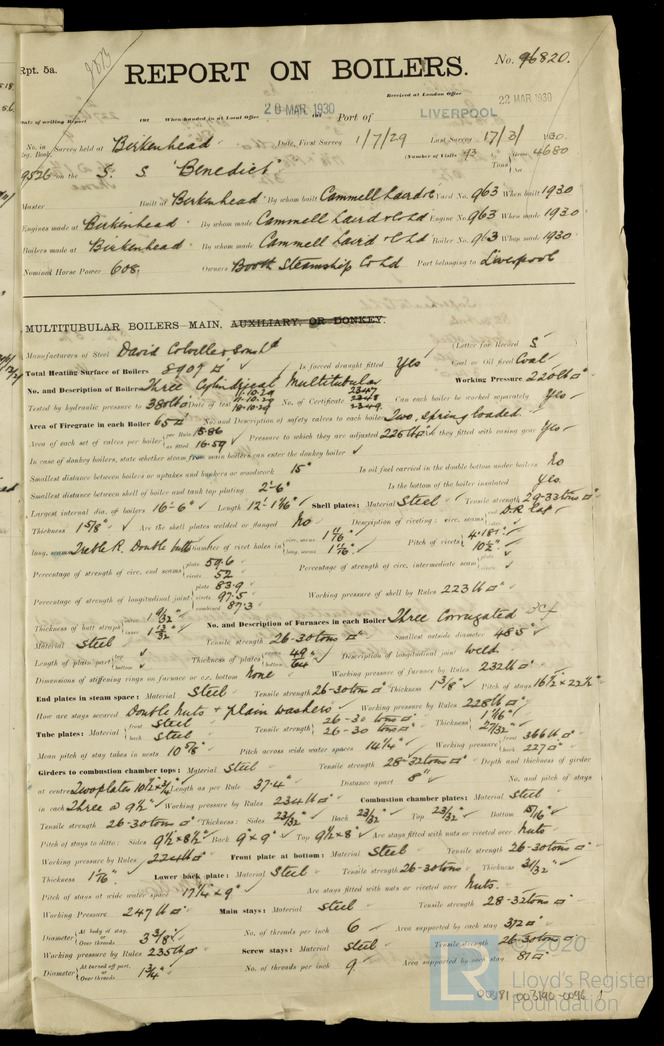 Rpt. 5a.
No. 96820.
REPORT ON BOILERS.
Received at London Office 22 MAR 1930
Date of writing Report 19 When handed in at Local Office 20 MAR 1930 19 Port of LIVERPOOL
No. in Reg. Book. Survey held at Birkenhead Date, First Survey 1/7/29 Last Survey 17/3/1930.
(Number of Visits 93 Tons Gross 4680 Net
9526 on the S. S "Benedict"
Master Built at Birkenhead By whom built Cammell Laird & Co Yard No. 963 When built 1930
Engines made at Birkenhead By whom made Cammell Laird & Co Ld Engine No. 963 When made 1930
Boilers made at Birkenhead By whom made Cammell Laird & Co Ld Boiler No. 963 When made 1930
Nominal Horse Power 608. Owners Booth Steamship Co Ld Port belonging to Liverpool
MULTITUBULAR BOILERS—MAIN, AUXILIARY, OR DONKEY.
Manufacturers of Steel David Colville & Sons Ld (Letter for Record S
Total Heating Surface of Boilers 8907 □' Is forced draught fitted Yes Coal or Oil fired Coal
No. and Description of Boilers Three Cylindrical Multitubular Working Pressure 220 lb □"
Tested by hydraulic pressure to 380 lb □" Date of test 18-10-29 No. of Certificate 2347 2348 2349 Can each boiler be worked separately Yes
Area of Firegrate in each Boiler 65 □' No. and Description of safety valves to each boiler Two, spring loaded
Area of each set of valves per boiler per Rule 15.86 as fitted 16.59 Pressure to which they are adjusted 225 lb □" Are they fitted with easing gear Yes
In case of donkey boilers, state whether steam from main boilers can enter the donkey boiler
Smallest distance between boilers or uptakes and bunkers or woodwork 15" Is oil fuel carried in the double bottom under boilers No
Smallest distance between shell of boiler and tank top plating 2'-6" Is the bottom of the boiler insulated Yes
Largest internal dia. of boilers 16'-6" Length 12'-1 1/16" Shell plates: Material Steel Tensile strength 29-33 tons □"
Thickness 1 5/8" Are the shell plates welded or flanged No Description of riveting: circ. seams D.R. Lap
long. seams Treble R. Double butts Diameter of rivet holes in circ. seams 1 11/16" long. seams 1 11/16" Pitch of rivets 4.187" 10 1/2"
Percentage of strength of circ. end seams plate 59.6 rivets 52 Percentage of strength of circ. intermediate seam
Percentage of strength of longitudinal joint plate 83.9 rivets 97.5 combined 87.3 Working pressure of shell by Rules 223 lb □"
Thickness of butt straps outer 1 9/32" inner 1 13/32" No. and Description of Furnaces in each Boiler Three Corrugated
Material Steel Tensile strength 26-30 tons □" Smallest outside diameter 48.5"
Length of plain part top bottom Thickness of plates 49/64" Description of longitudinal joint Weld.
Dimensions of stiffening rings on furnace or c.c. bottom None Working pressure of furnace by Rules 232 lb □"
End plates in steam space: Material Steel Tensile strength 26-30 tons □" Thickness 1 3/8" Pitch of stays 16 1/2" × 22 1/2"
How are stays secured Double Nuts + plain washers Working pressure by Rules 228 lb □"
Tube plates: Material front Steel back Steel Tensile strength 26-30 tons □" 26-30 tons □" Thickness 1 1/16" 27/32"
Mean pitch of stay tubes in nests 10 5/8" Pitch across wide water spaces 14 1/4" Working pressure front 366 lb □" back 227 □"
Girders to combustion chamber tops: Material Steel Tensile strength 28-32 tons □" Depth and thickness of girder
at centre Two plates 10 1/2 × 3/4" Length as per Rule 37.4" Distance apart 8" No. and pitch of stays
in each Three @ 9 1/2" Working pressure by Rules 234 lb □" Combustion chamber plates: Material Steel
Tensile strength 26-30 tons □" Thickness: Sides 23/32" Back 23/32" Top 23/32" Bottom 15/16"
Pitch of stays to ditto: Sides 9 1/2 × 8 1/2" Back 9" × 9" Top 9 1/2 × 8" Are stays fitted with nuts or riveted over Nuts
Working pressure by Rules 224 lb □" Front plate at bottom: Material Steel Tensile strength 26-30 tons □"
Thickness 1 1/16" Lower back plate: Material Steel Tensile strength 26-30 tons Thickness 31/32"
Pitch of stays at wide water space 17 1/4 × 9" Are stays fitted with nuts or riveted over Nuts.
Working Pressure 247 lb □" Main stays: Material Steel Tensile strength 28-32 tons □"
Diameter At body of stay, or Over threads 3 3/8" No. of threads per inch 6 Area supported by each stay 372 □"
Working pressure by Rules 235 lb □" Screw stays: Material Steel Tensile strength 26-30 tons □"
Diameter At turned off part, or Over threads 1 3/4" No. of threads per inch 9 Area supported by each stay 81 □"
© 2020
LR
Lloyd's Register
Foundation